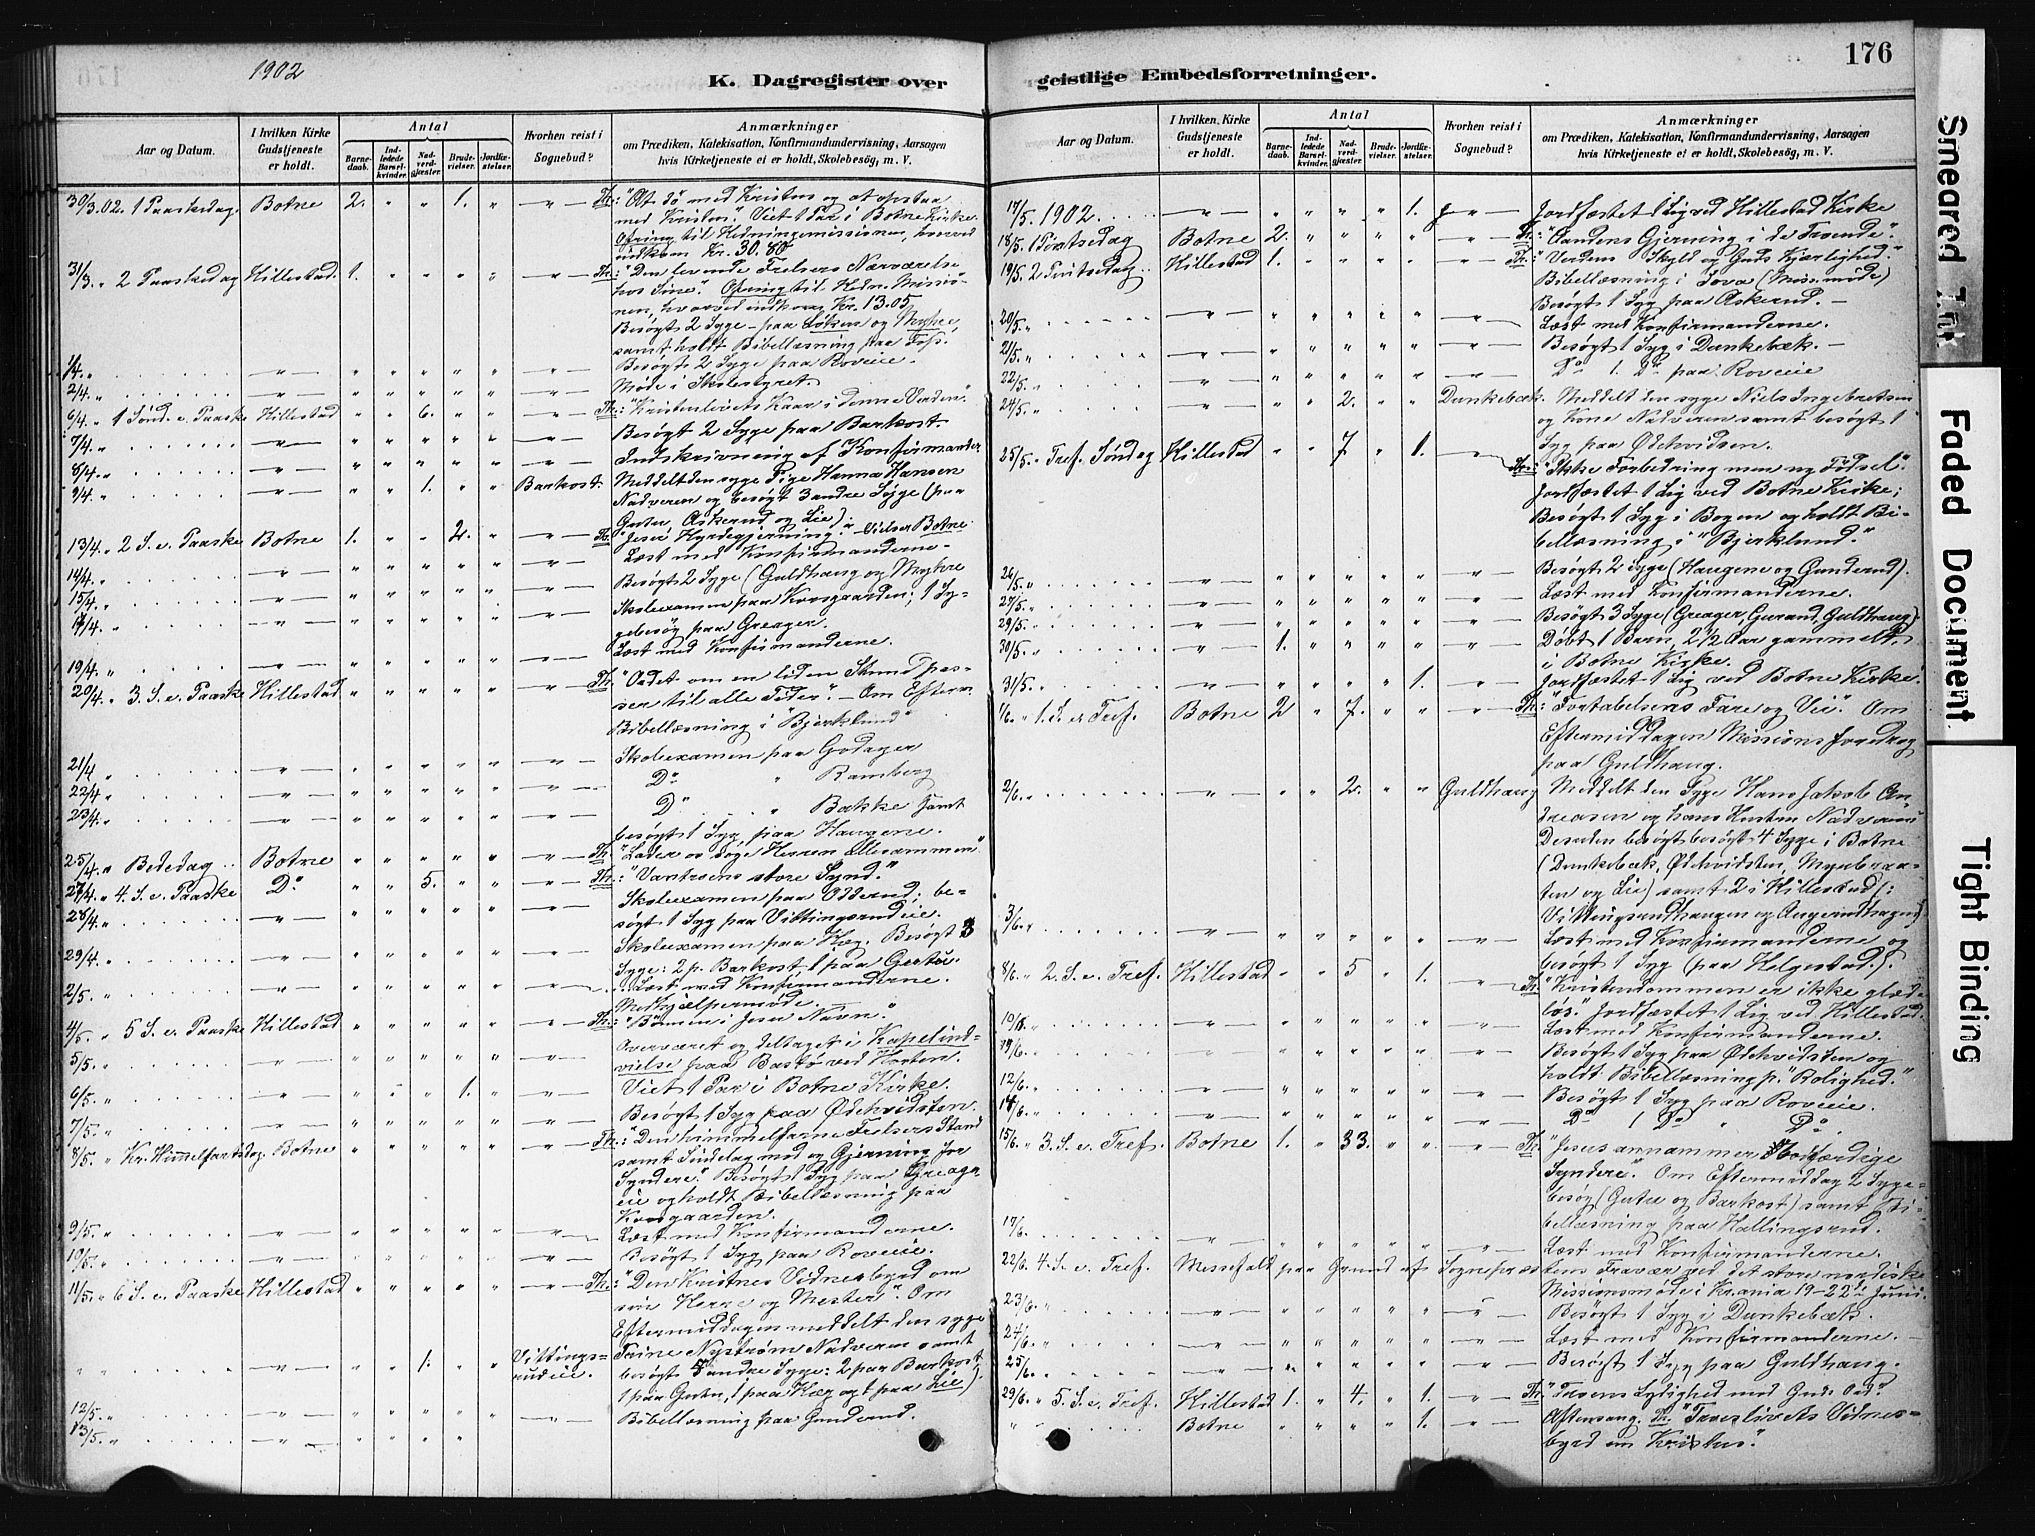 1902
K. Dagregister over
geistlige Embedsforretninger.
176
Aar og Datum.
I hvilken Kirke Gudstjeneste er holdt.
Antal
Barnedaab.
Indledede Barselkvinder.
Nadverdgjæster.
Brudevielser.
Jordfæstelser.
Hvorhen reist i Sognebud?
Anmærkninger
om Prædiken, Katekisation, Konfirmandundervisning, Aarsagen
hvis Kirketjeneste ei er holdt, Skolebesøg, m. V.
30/3.02. 1 Paaskedag. Botne 2. " " 1. " — " — Th: "At dø med Kristus og at opstaa
med Kristus". Viet 1 Par i Botne Kirke.
Ofring til Hedningemissionen, hvorved
indkom Kr. 30.80
31/3 " 2 Paaskedag Hillestad 1. " " " " — " — Th: "Den levende Frelsers Nærværelse
hos Sine". Ofring til Hedn. Missio-
nen, hvorved indkom Kr. 13.05
Besøgt 2 Syge – paa Løken og Myhre,
samt holdt Bibellæsning paa Foss.
1/4. " — " — " " " " " — " — Besøgt 2 Syge paa Roveie.
2/4. " — " — " " " " " — " — Møde i Skolestyret.
6/4. " 1 Sønd. e. Paaske Hillestad " " 6. " " — " — Th: "Kristenlivets Kaar i denne Verden."
7/4. " — " — " " " " " — " — Besøgt 2 Syge paa Barkost.
8/4. " — " — " " " " " — " — Indskrivning af Konfirmander
9/4. " — " — " " 1. " " Barkost. Meddelt den syge Pige Hanna Hansen
Nadveren og besøgt 3 andre Syge (paa
Gutu, Askerud og Lie).
13/4. " 2 S. e. Paaske Botne 1. " " 2. " — " — Th: "Jesu Hyrdegjerning". – Vielser Botne.
14/4. " — " — " " " " " — " — Læst med Konfirmanderne.
15/4. " — " — " " " " " — " — Besøgt 2 Syge (Guldhaug og Myhre
" — " — " " " " " — " — Skolexamen paa Korsgaarden; 1 Sy-
gebesøg paa Greager.
19/4. " — " — " " " " " — " — Læst med Konfirmanderne.
20/4. " 3 S. e. Paaske Hillestad " " " " " — " — Th: "Ordet om en liden Stund pas-
ser til alle Tider". – Om Efterm.
Bibellæsning i "Bjerklund"
21/4 " — " — " " " " " — " — Skolexamen paa Godager
22/4 " — " — " " " " " — " — Do " Ramberg
23/4. " — " — " " " " " — " — Do " Bakke samt
besøgt 1 Syg paa Haugene.
25/4. " Bededag Botne " " " " " — " — Th: "Lader os søge Herren Allesammen"
27/4. " 4. S. e. Paaske Do " " 5. " " — " — Th: "Vantroens store Synd."
28/4. " — " — " " " " " — " — Skolexamen paa Odderud; be-
søgt 1 Syg paa Vittingsrudeie.
29/4. " — " — " " " " " — " — Skolexamen paa Hæg. Besøgt 3
Syge: 2 p. Barkost, 1 paa Gutu.
2/5. " — " — " " " " " — " — Læst med Konfirmanderne.
Medhjælpermøde. –
4/5. " 5 S. e. Paaske Hillestad " " " " " — " — Th: "Bønnen i Jesu Navn."
5/5. " — " — " " " " " — " — Overværet og deltaget i Kapelind-
vielse paa Bastø ved Horten.
6/5. " — " — " " " 1. " — " — Viet 1 Par i Botne Kirke.
7/5. " — " — " " " " " — " — Besøgt 1 Syg paa Ødekvidsten.
8/5. " Kr. Himmelfartsdag. Botne " " " " " — " — Th: "Den himmelfarne Frelsers Stand
samt Sindelag mod og Gjerning for
Syndere." Besøgt 1 Syg paa Greager-
eie og holdt Bibellæsning paa
Korsgaarden.
9/5. " — " — " " " " " — " — Læst med Konfirmanderne.
10/5. " — " — " " " " " — " — Besøgt 1 Syg paa Roveie.
11/5. " 6 S. e. Paaske Hillestad " " " " " — " — Th: "Den Kristnes Vidnesbyrd om
sin Herre og Mester". Om
Eftermiddagen meddelt den syge
" " " " 1. " " Vittings- Trine Nystrøm Nadveren samt
rudeie. besøgt 5 andre Syge: 2 paa Barkost,
1 paa Gutu, 1 paa Hæg og 1 paa Lie).
12/5. " — " — " " " " " — " — Bibellæsning paa Gunderud.
13/5. " — " — " " " "
Aar og Datum.
I hvilken Kirke Gudstjeneste er holdt.
Antal
Barnedaab.
Indledede Barselkvinder.
Nadverdgjæster.
Brudevielser.
Jordfæstelser.
Hvorhen reist i Sognebud?
Anmærkninger
om Prædiken, Katekisation, Konfirmandundervisning, Aarsagen
hvis Kirketjeneste ei er holdt, Skolebesøg, m. V.
17/5. 1902. — " — " " " " 1. — " — Jordfæstet 1 Lig ved Hillestad Kirke
18/5. 1 Pintsedag Botne 2. " " " " — " — Th: "Aandens Gjerning i de Troende".
19/5. 2 Pintsedag Hillestad 1. " " " " — " — Th: "Verdens Skyld og Guds Kjærlighed."
Bibellæsning i Sova (Miss.møde)
Besøgt 1 Syg paa Askerud. –
20/5. " — " — " " " " " — " — Læst med Konfirmanderne.
21/5. " — " — " " " " " — " — Besøgt 1 Syg i Dunkebæk. –
22/5. " — " — " " " " " — " — Do 1. Do paa Roveie
24/5. " — " — " " 2. " " Dunkebæk. Meddelt den syge Niels Ingebretsen
og Kone Nadveren samt besøgt 1
Syg paa Ødekvidsten.
25/5. " Tref. Søndag Hillestad " " 7 " 1. — " — Th: "Ikke Forbedring men ny Fødsel".
Jordfæstet 1 Lig ved Botne Kirke;
Besøgt 1 Syg i Bogen og holdt Bi-
bellæsning i "Bjerklund."
26/5. " — " — " " " " " — " — Besøgt 2 Syge (Haugene og Gunderud).
27/5. " — " — " " " " " — " — Læst med Konfirmanderne.
29/5. " — " — " " " " " — " — Besøgt 3 Syge (Greager, Gurand, Guldhaug)
30/5. " — " — 1. " " " " — " — Døbt 1 Barn, 2 1/2 Aar gammelt,
i Botne Kirke.
31/5. " — " — " " " " 1. — " — Jordfæstet 1 Lig ved Botne Kirke.
1/6. " 1. S. e. Tref. Botne 2 " 7. " " — " — Th: "Fortabelsens Fare og Vei". Om
Eftermiddagen Missionsforedrag
paa Guldhaug.
2/6. " — " — " " 2. " " Guldhaug Meddelt den Syge Hans Jakob An-
dreasen og hans Hustru Nadveren
Desuden besøgt besøgt 4 Syge i Botne
(Dunkebæk, Ødekvidsten, Myrebraa-
ten og Lie) samt 2 i Hillestad (:
Vittingsrudhaugen og Angerudhagen)
3/6. " — " — " " " " " — " — Læst med Konfirmanderne og
besøgt 1 Syg (paa Helgestad.).
8/6. " 2. S. e. Tref. Hillestad " " 5 " 1. — " — Th: "Kristendommen er ikke glæde-
løs". Jordfæstet 1 Lig ved Hillestad.
10/6. " — " — " " " " " — " — Læst med Konfirmanderne.
" — " — " " " " " — " — Besøgt 1 Syg paa Ødekvidsten og
holdt Bibellæsning p. "Rolighed."
12/6. " — " — " " " " " — " — Besøgt 1 Syg paa Roveie.
14/6. " — " — " " " " " — " — Do 1 Do " Do.
15/6. " 3. S. e. Tref. Botne 1. " 33. " " — " — Th: "Jesus annammer
Syndere". Om Eftermiddag 2 Syge-
besøg (Gutu og Barkost) samt Bi-
bellæsning paa Hallingsrud.
17/6. — " — " " " " " — " — Læst med Konfirmanderne.
22/6. 4. S. e. Tref. Messefald paa Grund af Sognepræstens Fravær ved det store nordiske
Missionsmøde i Krania 19–22de Juni.
23/6. " — " — " " " " " " Besøgt 1 Syg i Dunkebæk.
24/6. " — " — " " " " " — " — Læst med Konfirmanderne. –
25/6. " — " — " " " " " — " — Besøgt 1 Syg paa Guldhaug.
29/6. " 5. S. e. Tref. Hillestad 1. " 4. " 1. — " — Th: "Troens Lydighed mod Guds Ord".
" Botne " " " " 1. — " — Aftensang. Th: "Troeslivets Vidnes-
byrd om Kristus".
Smeared Ink
Faded Document
Tight Binding